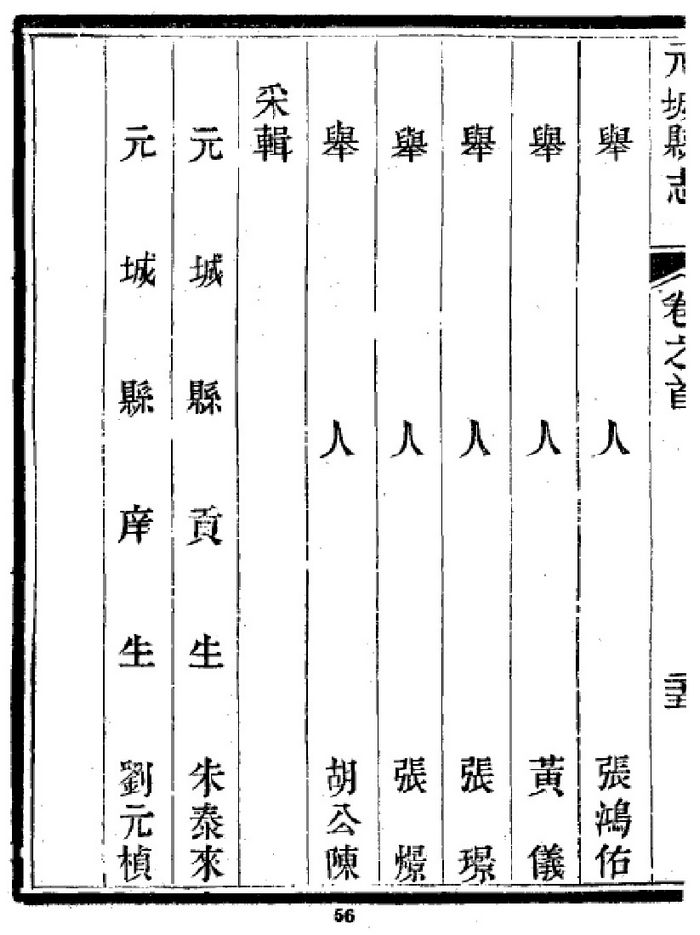 元城縣志 卷之首
舉人 張鴻佑
舉人 黃儀
舉人 張璟
舉人 張燝
舉人 胡公陳
采輯
元城縣貢生 朱泰來
元城縣庠生 劉元楨
56